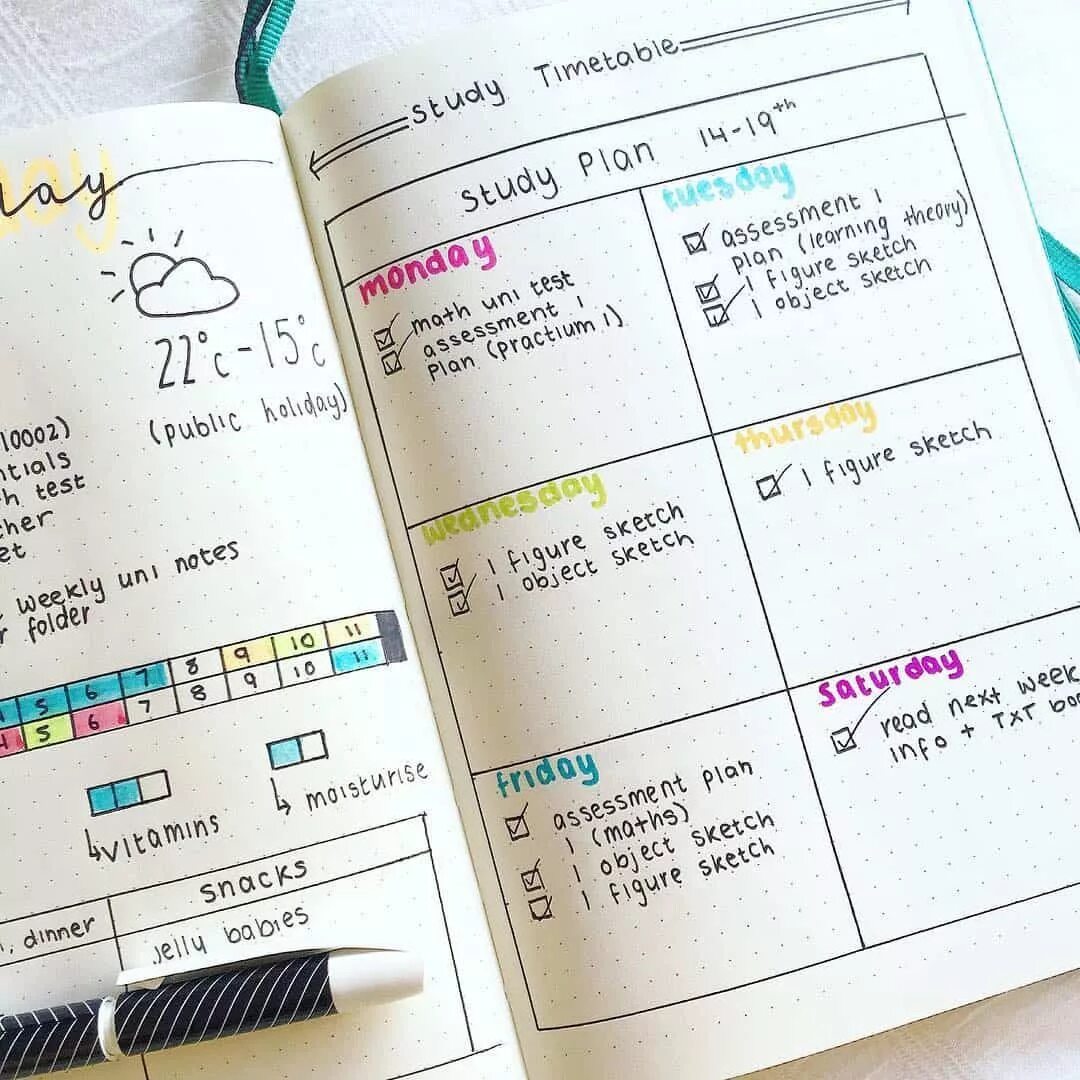 22°c - 15°c
(public holiday)
10002)
test
weekly uni notes
folder
5 6 7 8 9 10 11
5 6 7 8 9 10 11
vitamins
moisturise
snacks
dinner
jelly babies
Study Timetable
Study Plan 14-19th
monday
math uni test
assessment 1
plan (practium 1)
tuesday
assessment 1
plan (learning theory)
1 figure sketch
1 object sketch
wednesday
1 figure sketch
1 object sketch
thursday
1 figure sketch
friday
assessment plan
1 (maths)
1 object sketch
1 figure sketch
saturday
read next week
info + TXT